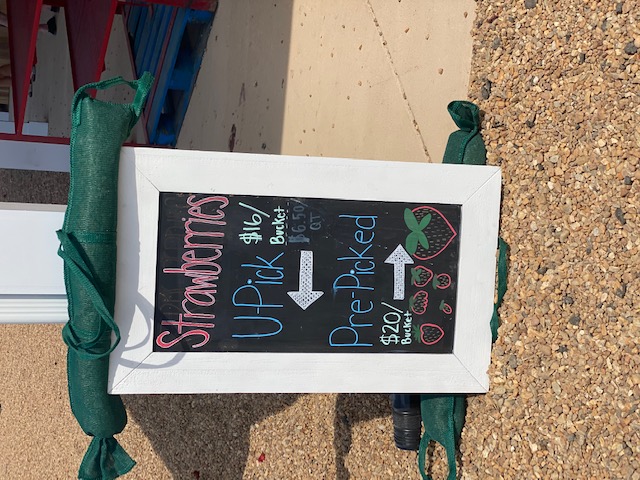 Strawberries
U-Pick $16/
Bucket
$6.50/
QT
Pre-Picked
$20/
Bucket